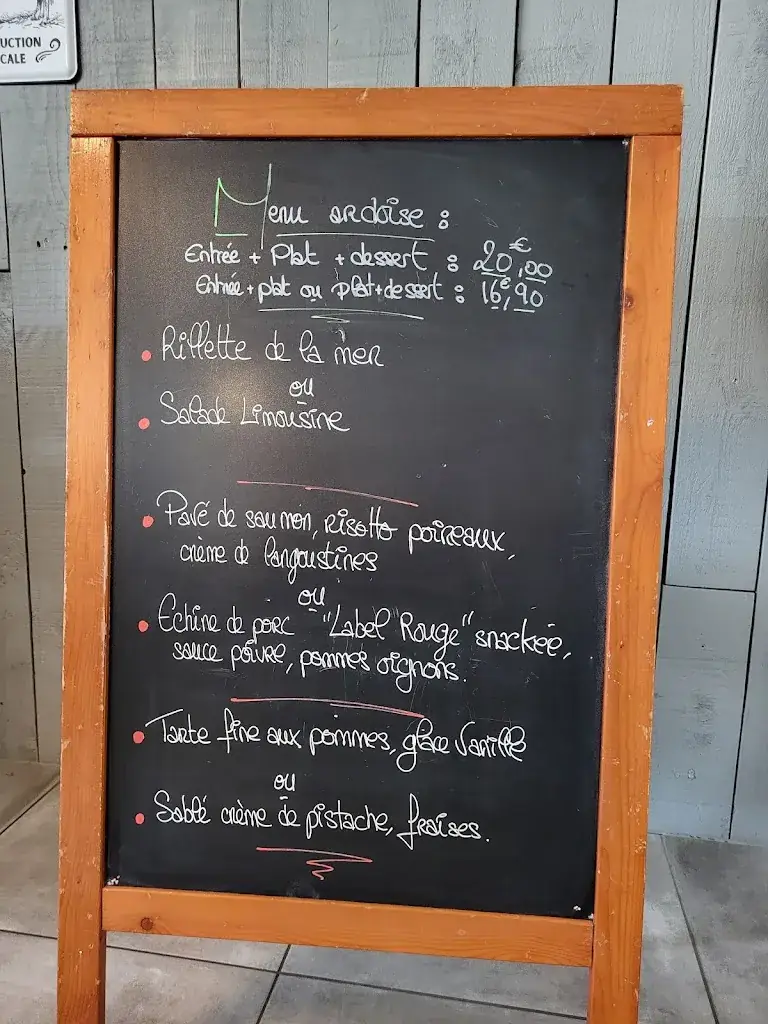 UCTION
CALE
Menu ardoise :
Entrée + Plat + dessert : 20,00€
Entrée + plat ou plat + dessert : 16,90€
• Rillette de la mer
ou
• Salade Limousine
• Pavé de saumon, risotto poireaux,
crème de langoustines
ou
• Echine de porc "Label Rouge" snackée,
sauce poivre, pommes oignons.
• Tarte fine aux pommes, glace vanille
ou
• Sablé crème de pistache, fraises.